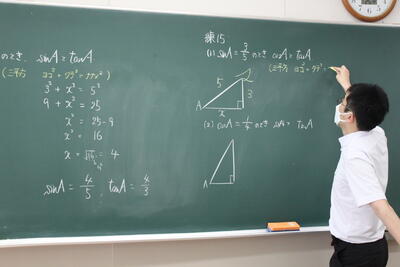 のとき sinA=tanA
(三平方 ヨコ²+タテ²=ナナメ²)
3² + x² = 5²
9 + x² = 25
x² = 25-9
x² = 16
x = √16 = 4
sinA = 4/5 tanA = 4/3
練15
(1) sinA=3/5 のとき cosA=tanA
(三平方 ヨコ²+タテ²=
5
3
A
x
(2) cosA= のとき sinA= tanA
A